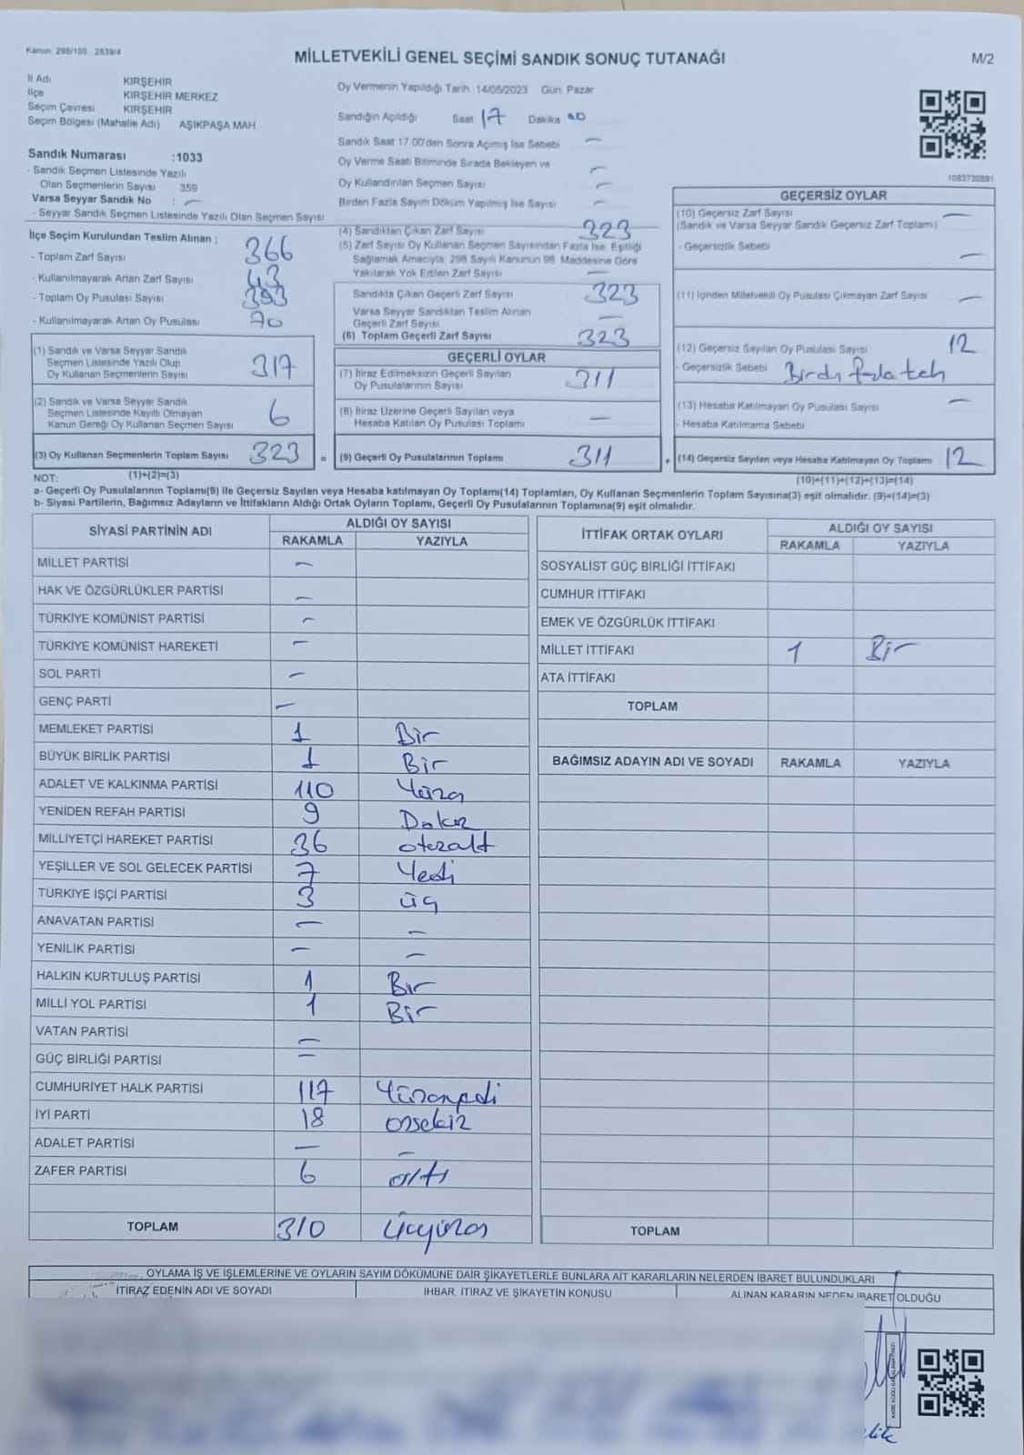 Kanun: 298/100 2839/4
MİLLETVEKİLİ GENEL SEÇİMİ SANDIK SONUÇ TUTANAĞI
M/2
İl Adı KIRŞEHİR
İlçe KIRŞEHİR MERKEZ
Seçim Çevresi KIRŞEHİR
Seçim Bölgesi (Mahalle Adı) AŞIKPAŞA MAH
Sandık Numarası :1033
- Sandık Seçmen Listesinde Yazılı
Olan Seçmenlerin Sayısı 359
Varsa Seyyar Sandık No : —
- Seyyar Sandık Seçmen Listesinde Yazılı Olan Seçmen Sayısı
Oy Vermenin Yapıldığı Tarih :14/05/2023 Gün: Pazar
Sandığın Açıldığı Saat 17 Dakika
Sandık Saat 17.00'den Sonra Açılmış İse Sebebi —
Oy Verme Saati Bitiminde Sırada Bekleyen ve —
Oy Kullandırılan Seçmen Sayısı —
Birden Fazla Sayım Döküm Yapılmış İse Sayısı —
1083730891
İlçe Seçim Kurulundan Teslim Alınan ;
- Toplam Zarf Sayısı 366
- Kullanılmayarak Artan Zarf Sayısı 43
- Toplam Oy Pusulası Sayısı 393
- Kullanılmayarak Artan Oy Pusulası 70
(1) Sandık ve Varsa Seyyar Sandık
Seçmen Listesinde Yazılı Olup
Oy Kullanan Seçmenlerin Sayısı 317
(2) Sandık ve Varsa Seyyar Sandık
Seçmen Listesinde Kayıtlı Olmayan
Kanun Gereği Oy Kullanan Seçmen Sayısı 6
(3) Oy Kullanan Seçmenlerin Toplam Sayısı 323 =
(4) Sandıktan Çıkan Zarf Sayısı 323
(5) Zarf Sayısı Oy Kullanan Seçmen Sayısından Fazla İse, Eşitliği
Sağlamak Amacıyla, 298 Sayılı Kanunun 98. Maddesine Göre
Yakılarak Yok Edilen Zarf Sayısı —
Sandıkta Çıkan Geçerli Zarf Sayısı 323
Varsa Seyyar Sandıktan Teslim Alınan
Geçerli Zarf Sayısı —
(6) Toplam Geçerli Zarf Sayısı 323
GEÇERLİ OYLAR
(7) İtiraz Edilmeksizin Geçerli Sayılan
Oy Pusulalarının Sayısı 311
(8) İtiraz Üzerine Geçerli Sayılan veya
Hesaba Katılan Oy Pusulası Toplamı —
(9) Geçerli Oy Pusulalarının Toplamı 311 +
GEÇERSİZ OYLAR
(10) Geçersiz Zarf Sayısı —
(Sandık ve Varsa Seyyar Sandık Geçersiz Zarf Toplamı)
- Geçersizlik Sebebi —
(11) İçinden Milletvekili Oy Pusulası Çıkmayan Zarf Sayısı —
(12) Geçersiz Sayılan Oy Pusulası Sayısı 12
- Geçersizlik Sebebi
(13) Hesaba Katılmayan Oy Pusulası Sayısı —
- Hesaba Katılmama Sebebi
(14) Geçersiz Sayılan veya Hesaba Katılmayan Oy Toplamı 12
NOT: (1)+(2)=(3) (10)+(11)+(12)+(13)=(14)
a- Geçerli Oy Pusulalarının Toplamı(9) ile Geçersiz Sayılan veya Hesaba katılmayan Oy Toplamı(14) Toplamları, Oy Kullanan Seçmenlerin Toplam Sayısına(3) eşit olmalıdır. (9)+(14)=(3)
b- Siyasi Partilerin, Bağımsız Adayların ve İttifakların Aldığı Ortak Oyların Toplamı, Geçerli Oy Pusulalarının Toplamına(9) eşit olmalıdır.
SİYASİ PARTİNİN ADI ALDIĞI OY SAYISI
RAKAMLA YAZIYLA
MİLLET PARTİSİ —
HAK VE ÖZGÜRLÜKLER PARTİSİ —
TÜRKİYE KOMÜNİST PARTİSİ —
TÜRKİYE KOMÜNİST HAREKETİ —
SOL PARTİ —
GENÇ PARTİ —
MEMLEKET PARTİSİ 1 Bir
BÜYÜK BİRLİK PARTİSİ 1 Bir
ADALET VE KALKINMA PARTİSİ 110 Yüzon
YENİDEN REFAH PARTİSİ 9 Dokuz
MİLLİYETÇİ HAREKET PARTİSİ 36 otuzaltı
YEŞİLLER VE SOL GELECEK PARTİSİ 7 Yedi
TÜRKİYE İŞÇİ PARTİSİ 3 üç
ANAVATAN PARTİSİ — —
YENİLİK PARTİSİ — —
HALKIN KURTULUŞ PARTİSİ 1 Bir
MİLLİ YOL PARTİSİ 1 Bir
VATAN PARTİSİ —
GÜÇ BİRLİĞİ PARTİSİ —
CUMHURİYET HALK PARTİSİ 117 Yüzonyedi
İYİ PARTİ 18 onsekiz
ADALET PARTİSİ — —
ZAFER PARTİSİ 6 altı
TOPLAM 310 üçyüzon
İTTİFAK ORTAK OYLARI ALDIĞI OY SAYISI
RAKAMLA YAZIYLA
SOSYALİST GÜÇ BİRLİĞİ İTTİFAKI
CUMHUR İTTİFAKI
EMEK VE ÖZGÜRLÜK İTTİFAKI
MİLLET İTTİFAKI 1 Bir
ATA İTTİFAKI
TOPLAM
BAĞIMSIZ ADAYIN ADI VE SOYADI RAKAMLA YAZIYLA
TOPLAM
OYLAMA İŞ VE İŞLEMLERİNE VE OYLARIN SAYIM DÖKÜMÜNE DAİR ŞİKAYETLERLE BUNLARA AİT KARARLARIN NELERDEN İBARET BULUNDUKLARI
İTİRAZ EDENİN ADI VE SOYADI İHBAR, İTİRAZ VE ŞİKAYETİN KONUSU ALINAN KARARIN NEDEN İBARET OLDUĞU